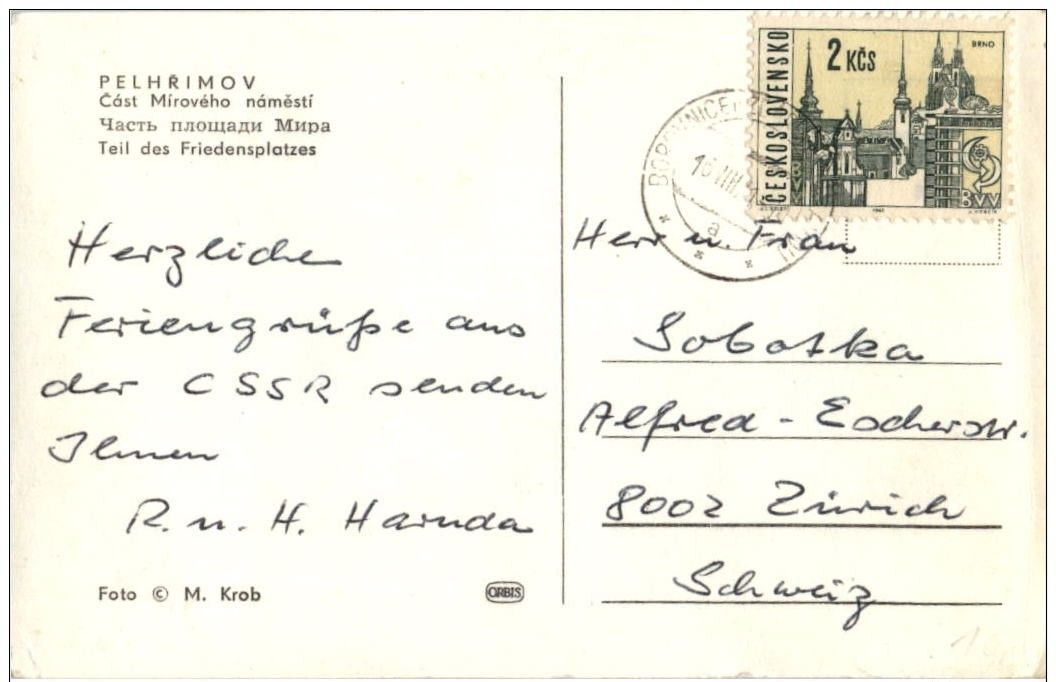 PELHŘIMOV
Část Mírového náměstí
Часть площади Мира
Teil des Friedensplatzes
Herzliche
Feriengrüße aus
der CSSR senden
Ihnen
R. u. H. Harnda
Foto © M. Krob
ORBIS
ČESKOSLOVENSKO
2 KČS
BRNO
BVV
BOROVNICE
a
Herr u Frau
Sobotka
Alfred - Escherstr.
8002 Zürich
Schweiz